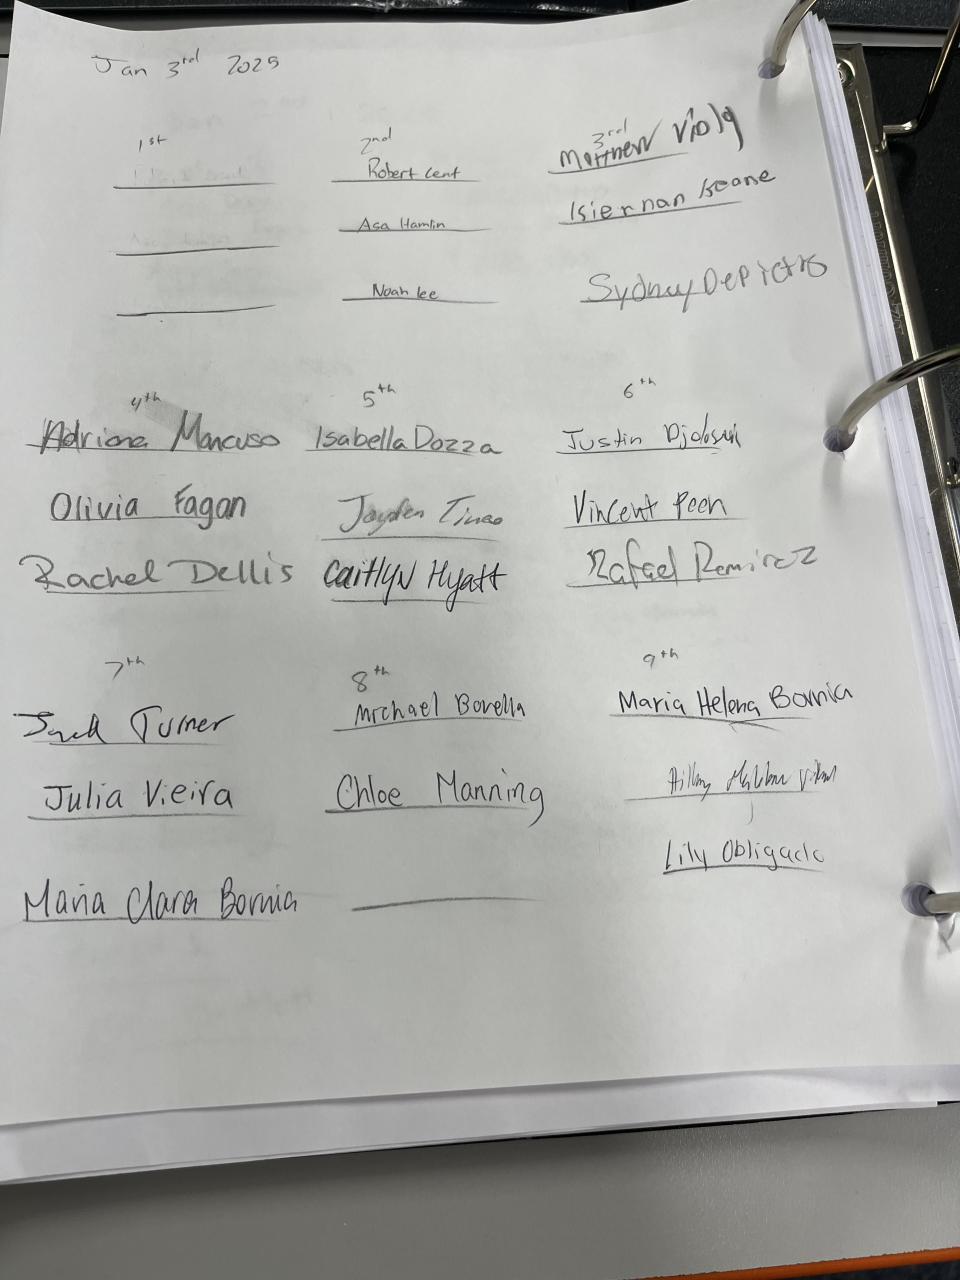 Jan 3rd 2025
1st
2nd
3rd
Robert Cent
Matthew Viola
Asa Hamlin
Kiernan Keane
Noah Lee
Sydney
4th
5th
6th
Adriana Mancuso
Isabella Dozza
Justin
Olivia Fagan
Jayden
Vincent Peen
Rachel Dellis
Caitlyn Hyatt
Rafael Ramirez
7th
8th
9th
Jack Turner
Michael Borella
Maria Helena Bornia
Julia Vieira
Chloe Manning
Lily Obligado
Maria Clara Bornia